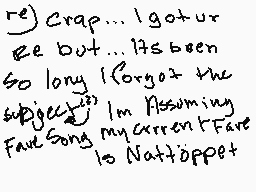 re) crap... I got ur
Re but... Its been
So long I forgot the
subject(?) Im Assuming
Fave Song my current Fave
Is Nattöppet